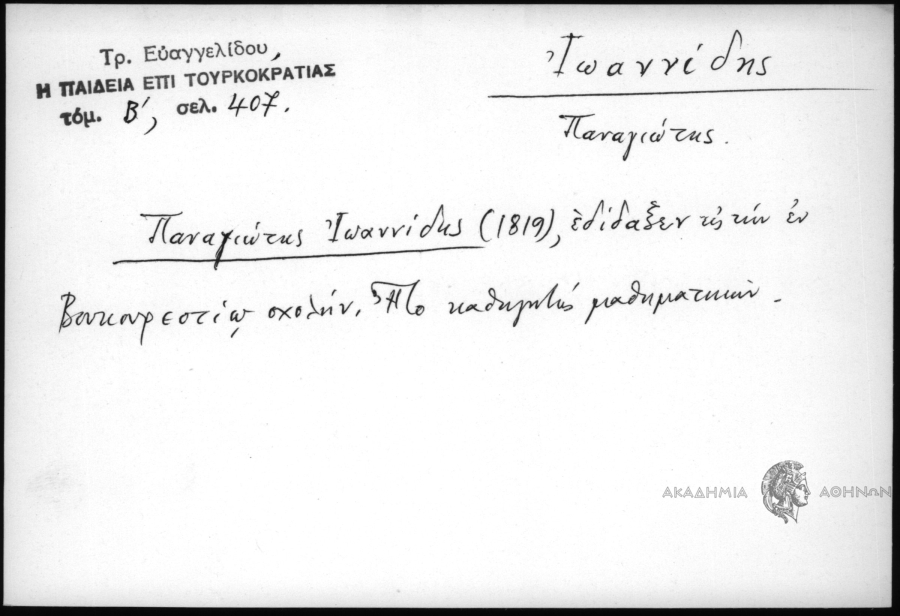 Τρ. Εὐαγγελίδου,
Η ΠΑΙΔΕΙΑ ΕΠΙ ΤΟΥΡΚΟΚΡΑΤΙΑΣ
τόμ. Β′, σελ. 407.
Ἰωαννίδης
Παναγιώτης.
Παναγιώτης Ἰωαννίδης (1819), ἐδίδαξεν εἰς τήν ἐν
Βουκουρεστίῳ σχολήν. Ἦτο καθηγητής μαθηματικῶν.
ΑΚΑΔΗΜΙΑ ΑΘΗΝΩΝ